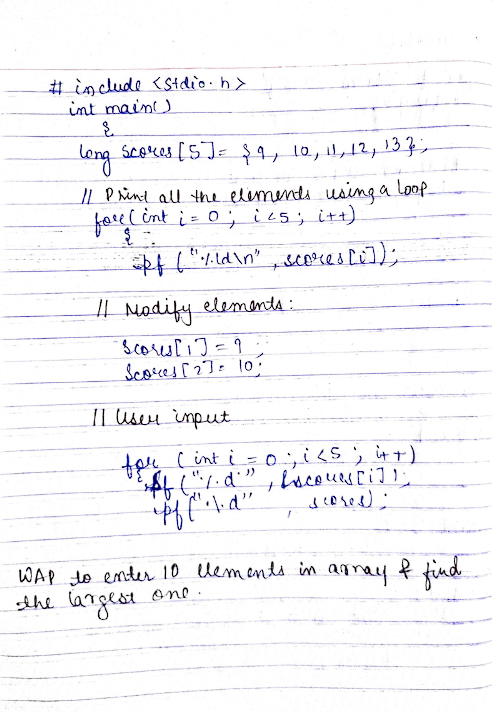 # include <stdio.h>
int main()
{
long scores[5]= {9, 10, 11, 12, 13};
// Print all the elements using a loop
for(int i = 0; i<5; i++)
{
pf ("%ld\n", scores[i]);
// Modify elements:
scores[1] = 9;
scores[2] = 10;
// User input
for (int i = 0; i<5; i++)
{ sf ("%d", &scores[i]);
pf("%d", scores);
WAP to enter 10 elements in array & find
the largest one.